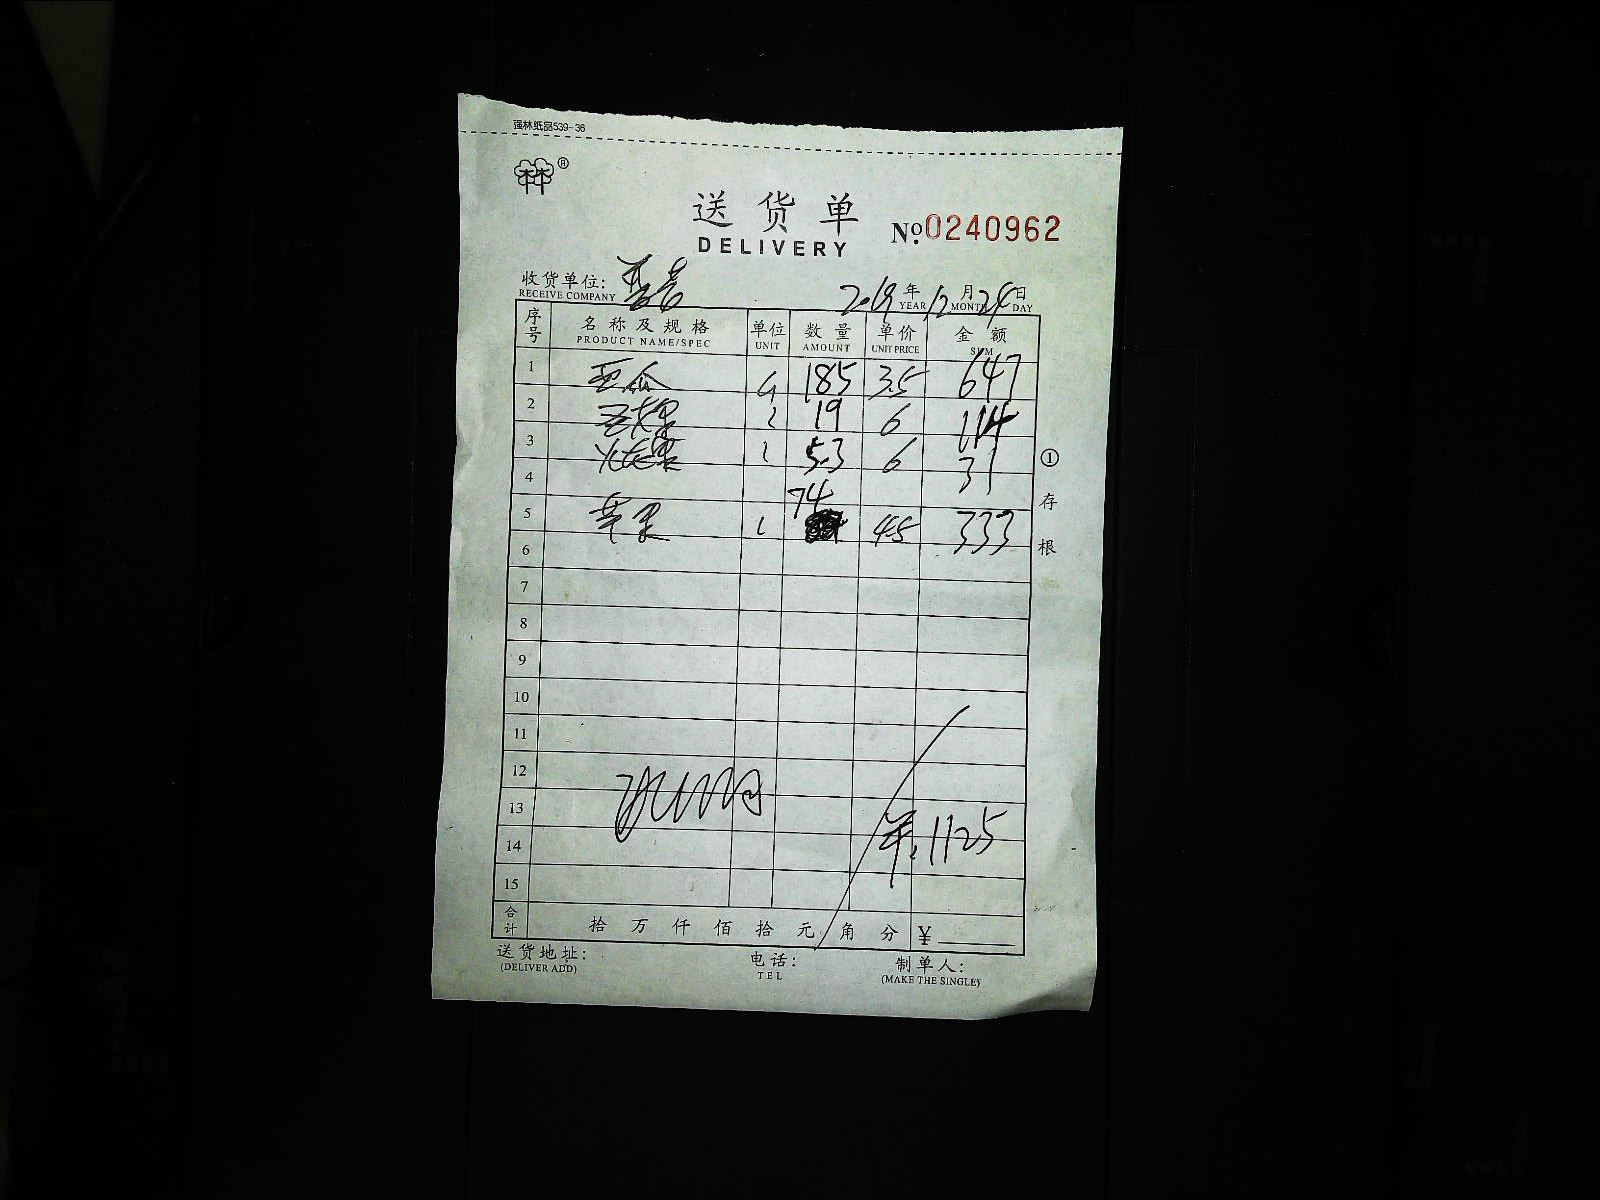 强林纸品539-36
林®
送货单
№0240962
DELIVERY
收货单位:
2019年12月24日
RECEIVE COMPANY
YEAR MONTH DAY
序号 名称及规格 单位 数量 单价 金额
PRODUCT NAME/SPEC UNIT AMOUNT UNIT PRICE SUM
1 西瓜 185 3.5 647
2 19 6 114
3 火龙果 5.3 6 31
4 74
5 苹果 4.5 333
6
7
8
9
10
11
12
13
14 1125
15
合计 拾 万 仟 佰 拾 元 角 分 ¥
①存根
送货地址: 电话: 制单人:
(DELIVER ADD) TEL (MAKE THE SINGLE)